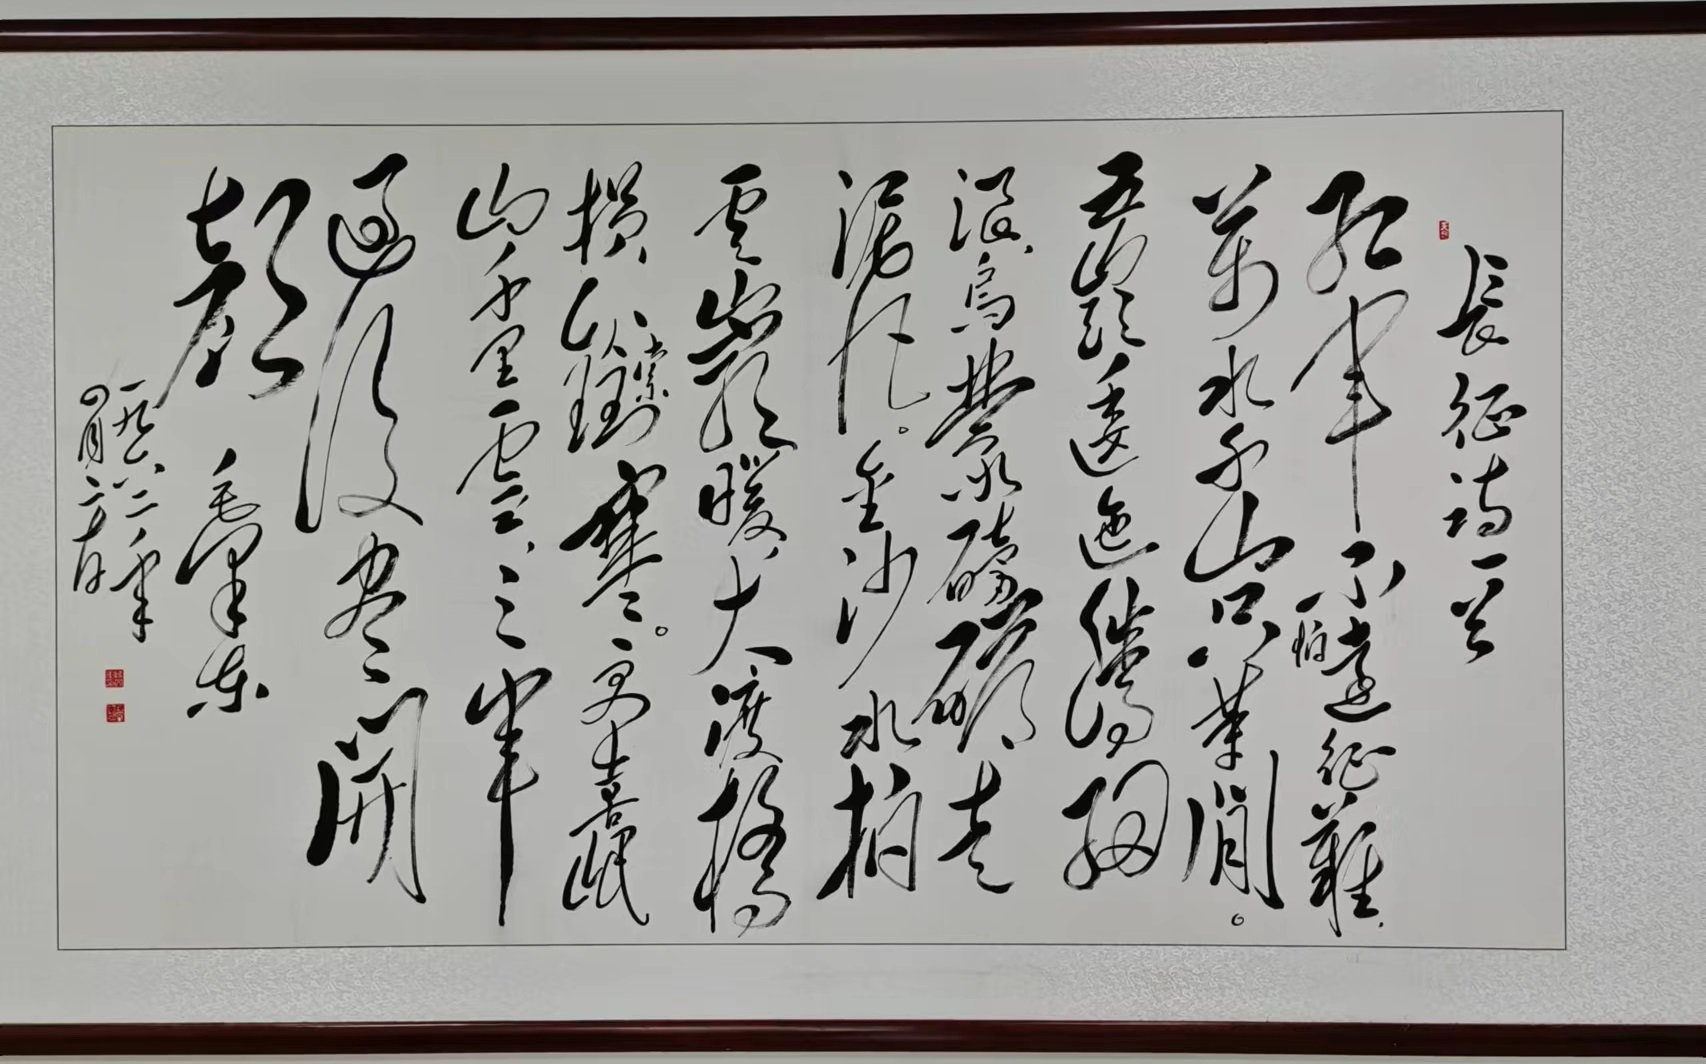 長征詩一首
紅軍不怕遠征難,
萬水千山只等閒。
五嶺逶迤騰細
浪,烏蒙磅礴走
泥丸。金沙水拍
雲崖暖,大渡橋
横鐵索寒。更喜岷
山千里雪,三軍
過後盡開
顏
毛澤東
一九六二年
四月二十日